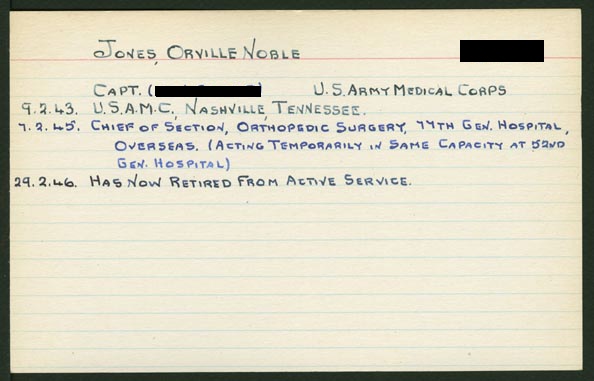 JONES, ORVILLE NOBLE
CAPT. ( ) U.S. ARMY MEDICAL CORPS
9.2.43. U.S.A.M.C., NASHVILLE, TENNESSEE.
7.2.45. CHIEF OF SECTION, ORTHOPEDIC SURGERY, 77TH GEN. HOSPITAL,
OVERSEAS. (ACTING TEMPORARILY IN SAME CAPACITY AT 52ND
GEN. HOSPITAL)
29.2.46. HAS NOW RETIRED FROM ACTIVE SERVICE.